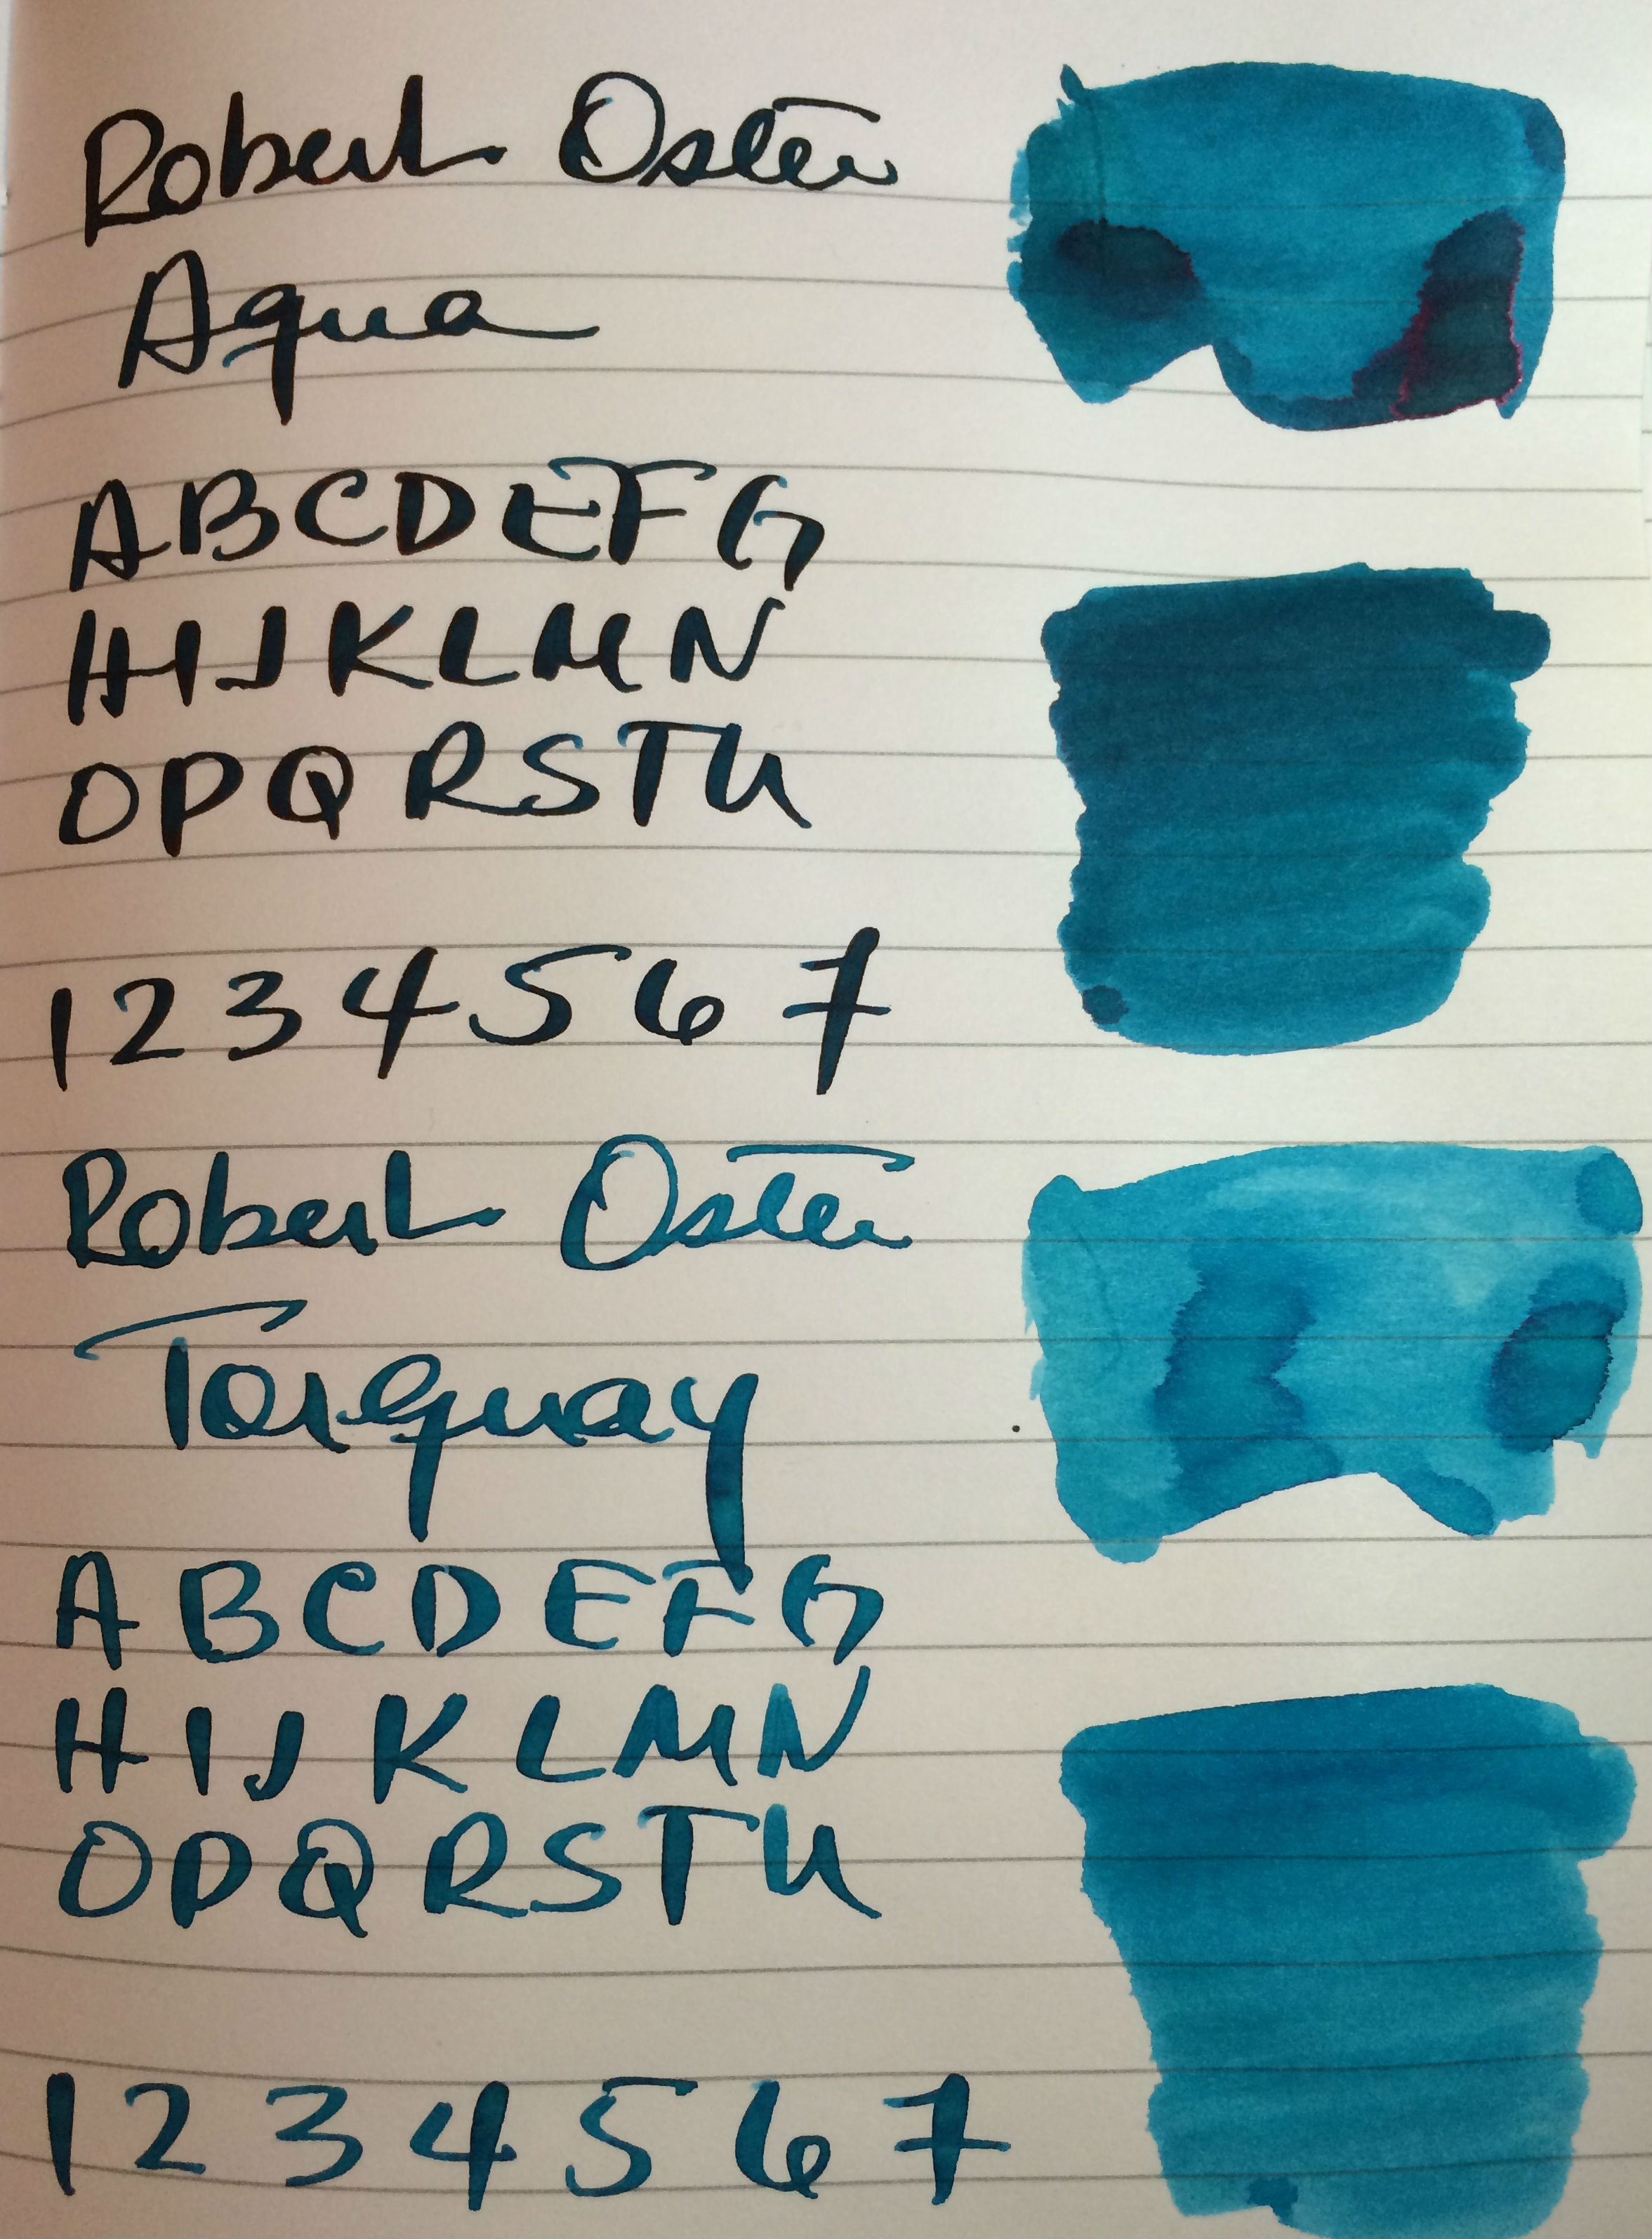 Robert Oster
Aqua
A B C D E F G
H I J K L M N
O P Q R S T U
1 2 3 4 5 6 7
Robert Oster
Torquay
A B C D E F G
H I J K L M N
O P Q R S T U
1 2 3 4 5 6 7